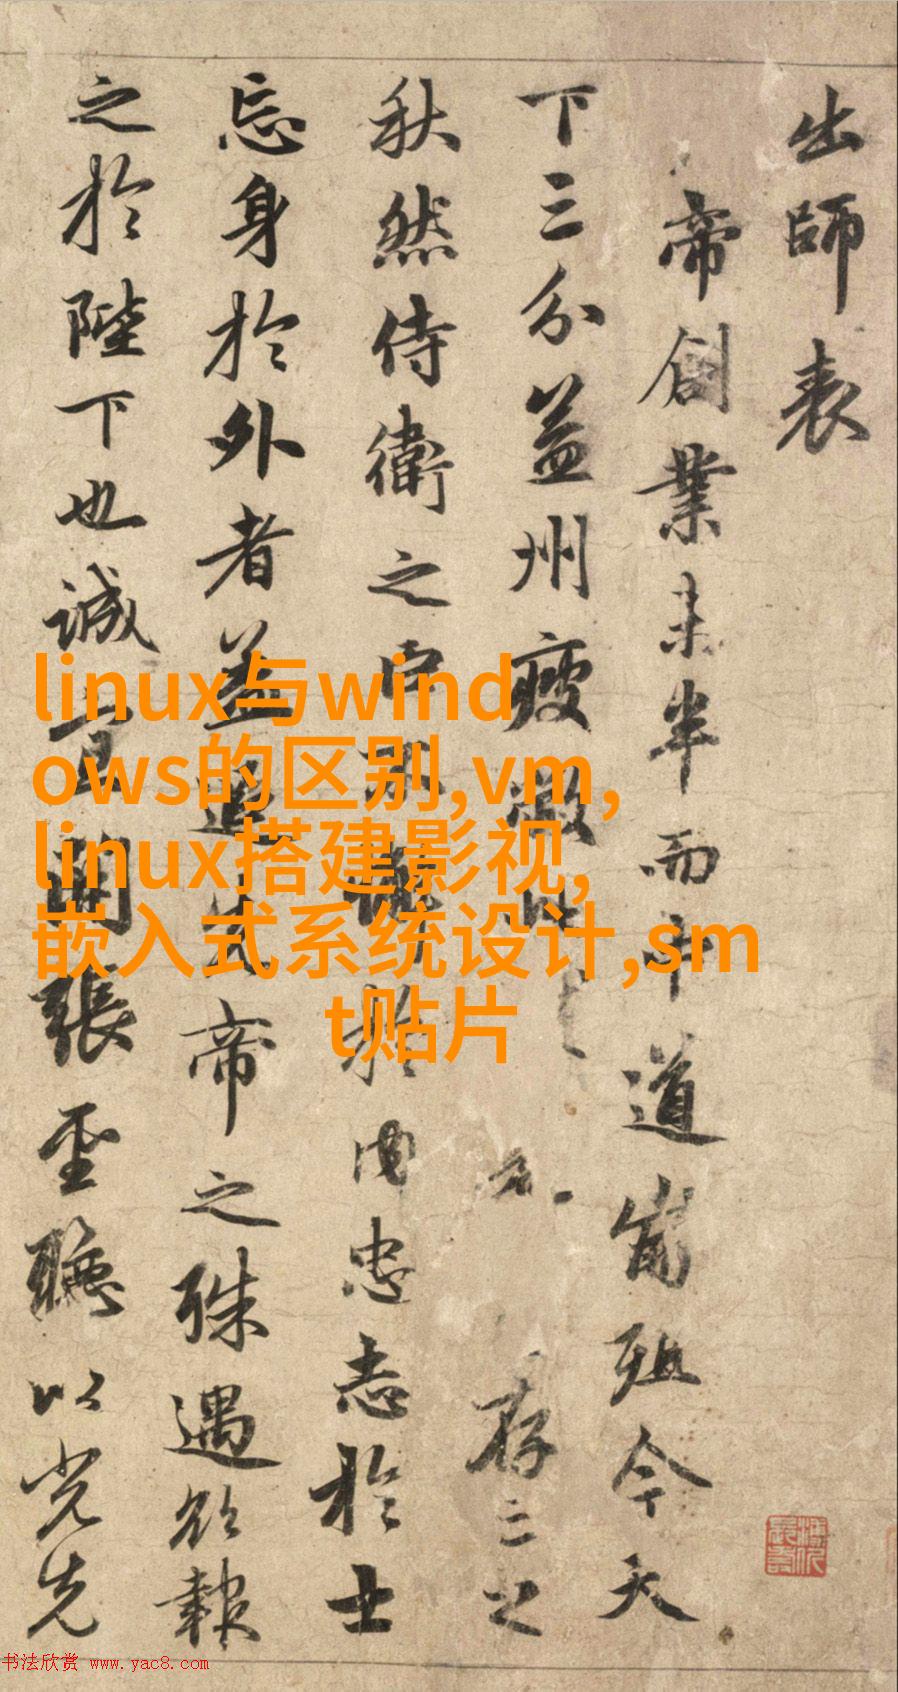 出師表
帝創業未半而中道崩殂今天
下三分益州疲敝存之
秋然侍衛之臣不懈於內忠志於士
忘身於外者蓋追先帝之殊遇欲報
之於陛下也誠宜開張聖聽以光先
linux与wind
ows的区别,vm,
linux搭建影视,
嵌入式系统设计,sm
t贴片
书法欣赏 www.yac8.com